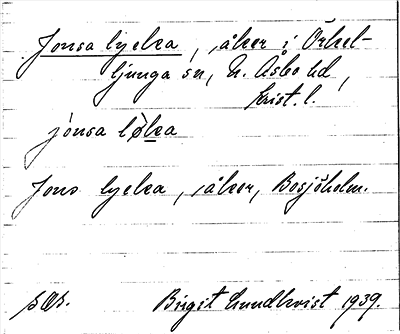 Jonsa lycka, åker i Örkel-
ljunga sn, N. Åsbo hd,
Krist. l.
jonsa
Jons lycka, åker, Bosjöholm.
Birgit Lundkvist 1939.